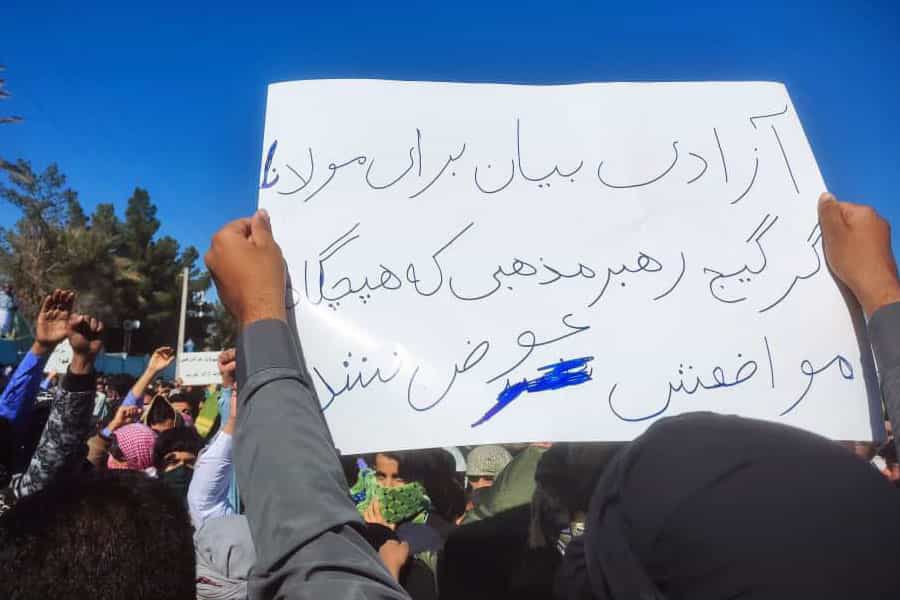 آزادی بیان برای مولانا
گرگیج رهبر مذهبی که هیچگاه
مواضعش عوض نشد